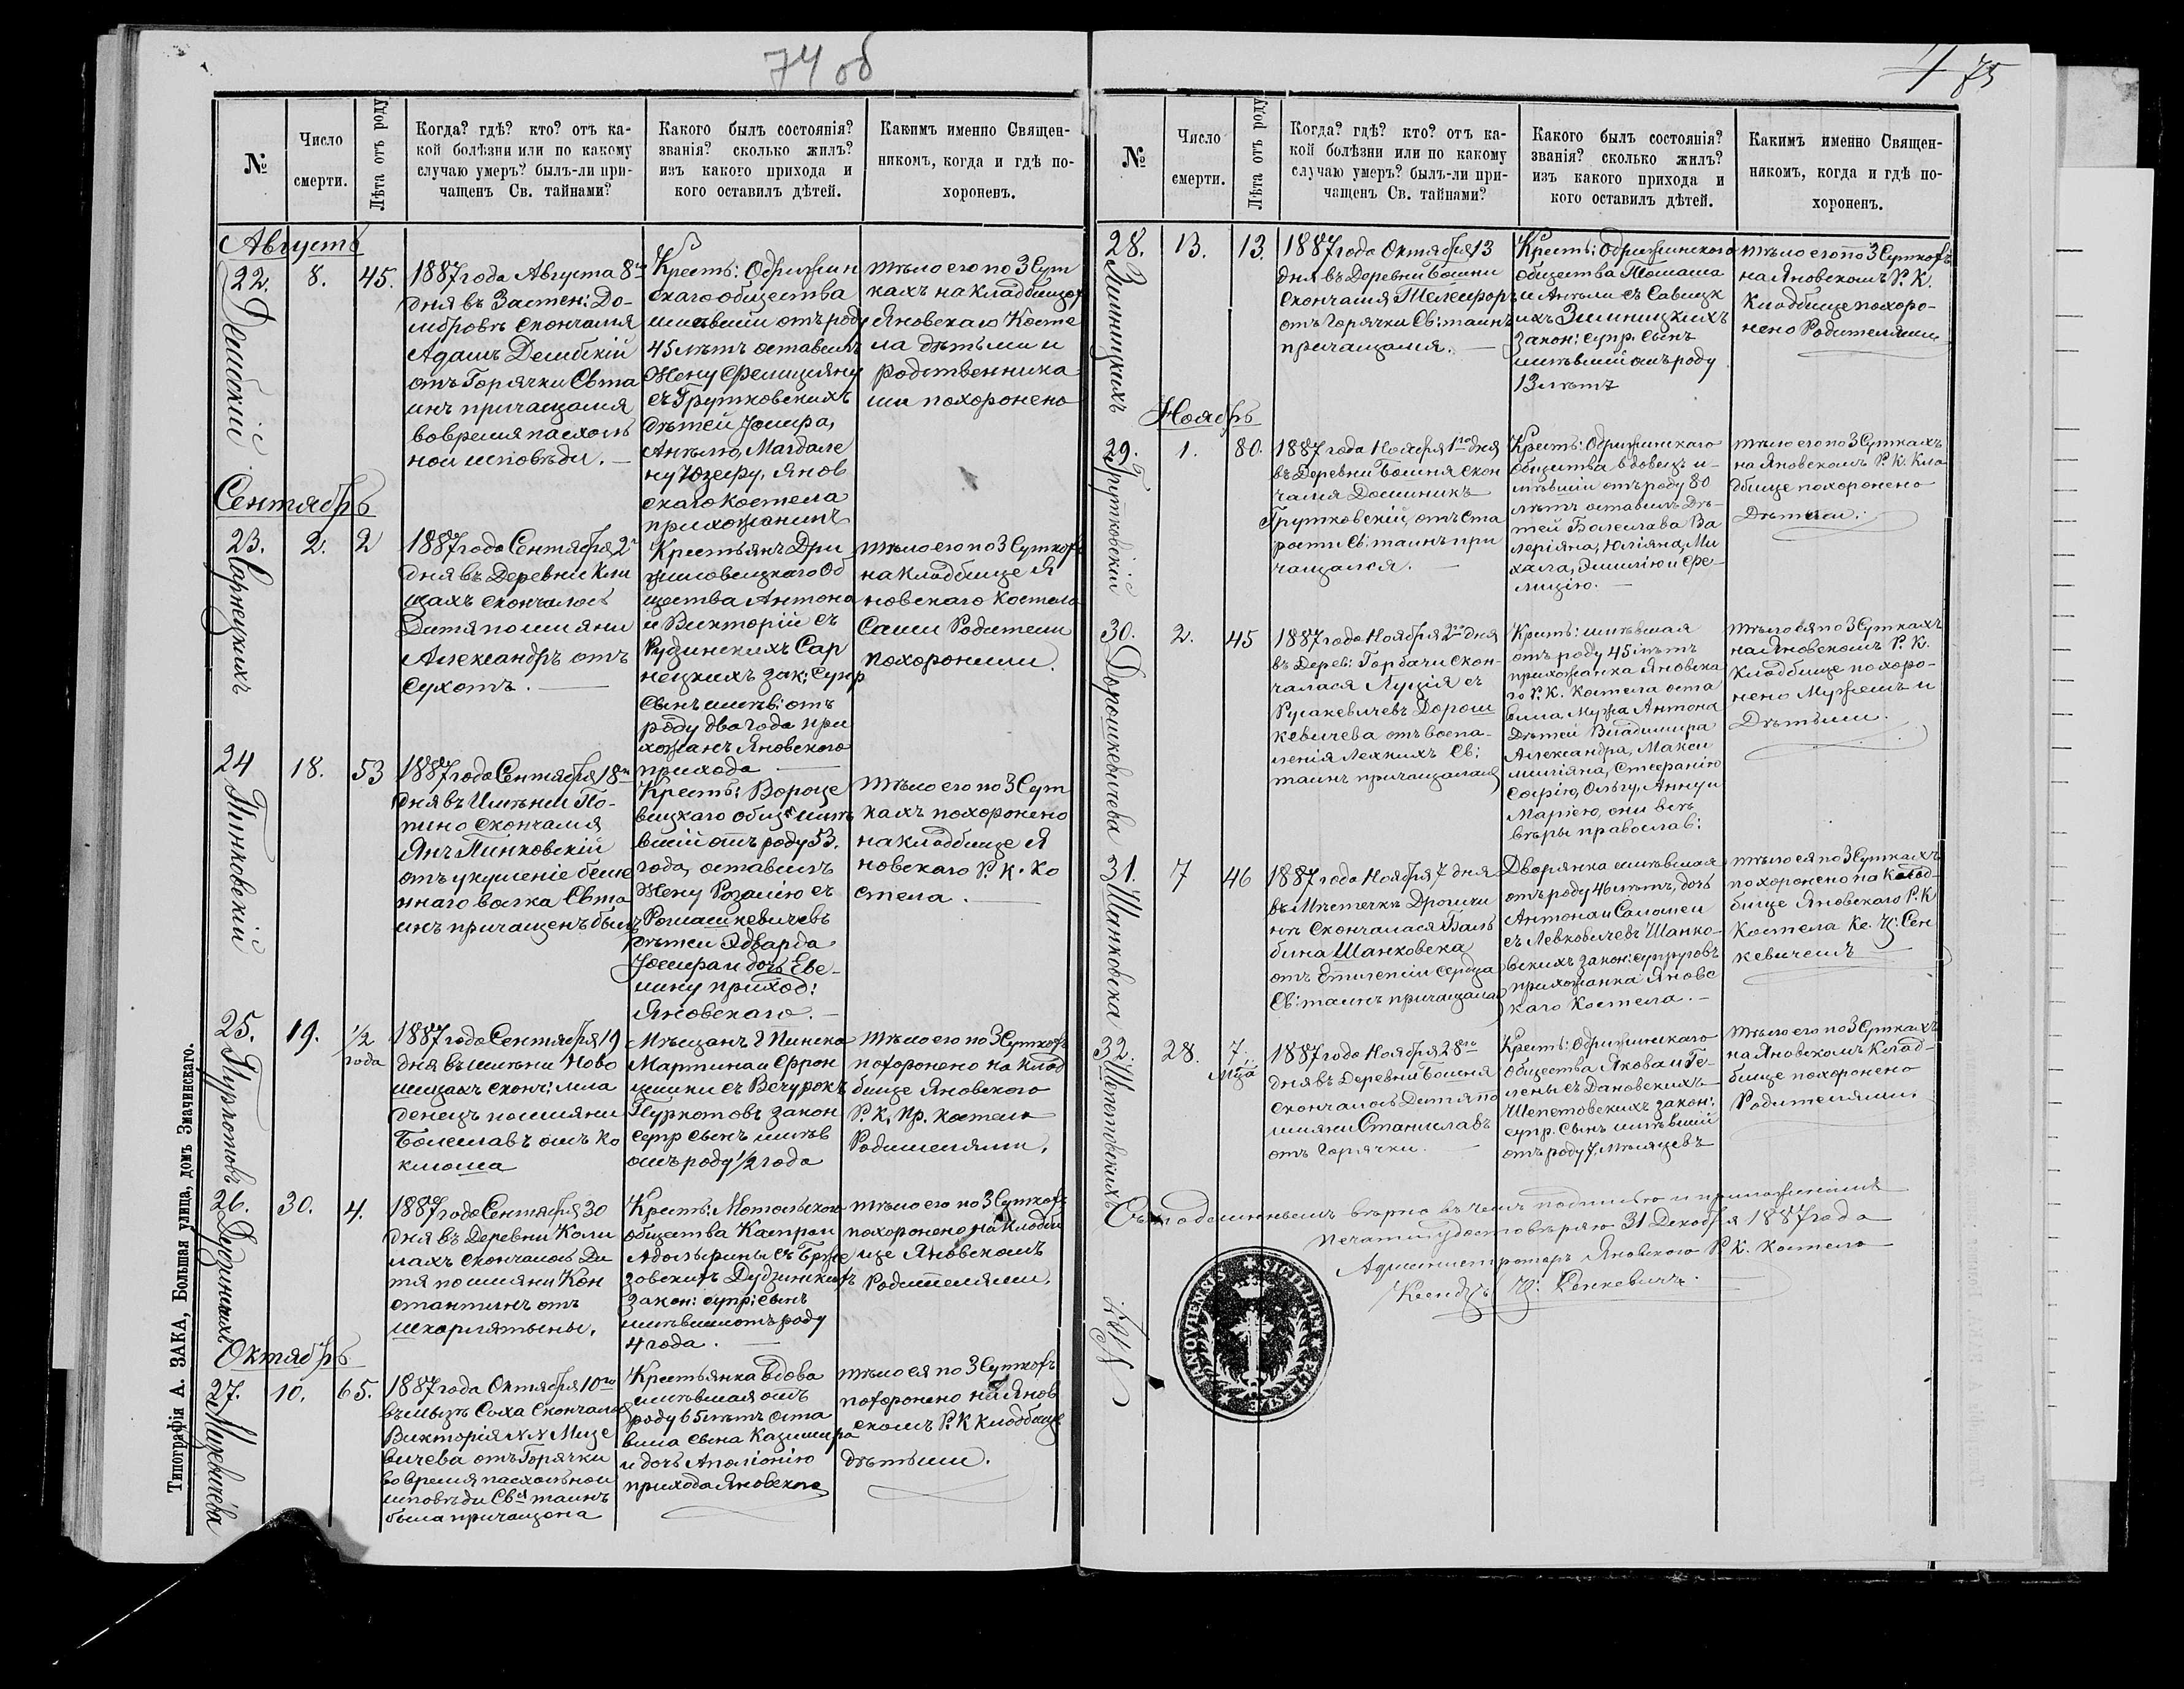 74 об
№
Число
смерти.
Лѣта отъ роду
Когда? гдѣ? кто? отъ ка-
кой болѣзни или по какому
случаю умеръ? былъ-ли при-
чащенъ Св. тайнами?
Какого былъ состоянія?
званія? сколько жилъ?
изъ какого прихода и
кого оставилъ дѣтей.
Какимъ именно Священ-
никомъ, когда и гдѣ по-
хороненъ.
Августъ
22.
8.
45.
1887 года Августа 8го
дня въ Застен: До-
скончался
Адамъ
отъ Горячки Св та
инъ причащался
вовремя пасхаль
ной исповѣди.
Крест:
скаго общества
имѣвшій отъ роду
45 лѣтъ оставилъ
Жену Фелицияну
съ Грутковскихъ
дѣтей Іосифа,
Анѣлю, Магдале
ну Юзефу, Янов
скаго костела
прихожанинъ
тѣло его по 3 Сут
кахъ на кладбищѣ
Яновскаго Косте
ла дѣтьми и
родственника
ми похоронено
Сентябрь
23.
2.
2
1887 года Сентября 2го
дня въ Деревни Кли
щахъ скончалось
Дитя по имяни
Александръ отъ
Сухотъ.
Крестьянъ Дру
жиловицкаго Об
щества Антона
и Викторіи съ
Рудзинскихъ Сар
нецкихъ зак: супр
Сынъ имѣв: отъ
роду два года при
хожанъ Яновского
прихода
тѣло его по 3 Суткахъ
на Кладбище Я
новскаго костела
Сами Родители
похоронили.
24
Пинковскій
18.
53
1887 года Сентября 18го
дня въ Имѣніи По-
тино Скончался
Янъ Пинковскій
отъ укушеніе беше
ннаго волка Св та
инъ причащенъ былъ
Крест: Вороце
вицкаго общес имѣ
вшій отъ роду 53.
года, оставилъ
Жену Розалію съ
Ромашкевичевъ
дѣтей Эдварда
Іосифа и дочь Еве-
лину приход:
Яновскаго.
тѣло его по 3 Сут
кахъ похоронено
на кладбище Я
новскаго Р. К. Ко
стела.
25.
Пуркотовъ
19.
1/2
года
1887 года Сентября 19
дня въ имѣни Ново
лищахъ сконч: мла
денецъ по имяни
Болеславъ отъ Ко
клюша
Мѣщанъ г Пинска
Мартина и Фрон
цишки съ Вечурокъ
Пуркотовъ закон
супр сынъ имѣв
отъ роду 1/2 года
тѣло его по 3 Суткахъ
похоронено на клад
бище Яновского
Р. К. Пр. костела
Родителями.
26.
Дудзинскихъ
30.
4.
1887 года Сентября 30
дня въ Деревни Коли
лахъ скончалось Ди
тя по имяни Кон
стантинъ отъ
шкарлятыны.
Крест: Мотольскаго
общества Каспра и
Адольфины съ Брже
зовскихъ Дудзинскихъ
закон: супр: сынъ
имѣвшій отъ роду
4 года.
тѣло его по 3 Суткахъ
похоронено на кладби
ще Яновскомъ
Родителями.
Октябрь
27.
Мицевичева
10.
65.
1887 года Октября 10го
Соха скончалась
Викторія N N Мице
вичева отъ Горячки
во время пасхальной
исповѣди Св таинъ
была причащона
Крестьянка вдова
имѣвшая отъ
роду 65 лѣтъ оста
вила сына Казимира
и дочь Аполіонію
прихода Яновского
тѣло ея по 3 Суткахъ
похоронено на Янов
скомъ Р. К кладбище
дѣтьми.
Типографія А. ЗАКА, Большая улица, домъ Значинскаго.
75
№
Число
смерти.
Лѣта отъ роду
Когда? гдѣ? кто? отъ ка-
кой болѣзни или по какому
случаю умеръ? былъ-ли при-
чащенъ Св. тайнами?
Какого былъ состоянія?
званія? сколько жилъ?
изъ какого прихода и
кого оставилъ дѣтей.
Какимъ именно Священ-
никомъ, когда и гдѣ по-
хороненъ.
28.
Зимницкихъ
13.
13.
1887 года Октября 13
дня въ Деревни Бошни
скончался Телесфоръ
отъ Горячки Св: таинъ
причащался.
Крест: Одрижинскаго
общества Томаша
и Анѣли съ Савицк
ихъ Зимницкихъ
закон: супр. сынъ
имѣвшій отъ роду
13 лѣтъ
тѣло его по 3 Суткахъ
на Яновскомъ Р. К.
Кладбище похоро-
нено Родителями
Ноябрь
29.
Грутковскій
1.
80.
1887 года Ноября 1го дня
въ Деревни Бошня скон
чался Доминикъ
Грутковскій, отъ ста
рости Св: таинъ при
чащался.
Крест: Одрижинскаго
общества вдовецъ и-
мѣвшій отъ роду 80
лѣтъ оставилъ Дѣ-
тей Болеслава Ва
леріяна, Юліяна, Ми
хала, Эмилію и Фе-
лицію.
тѣло его по 3 Суткахъ
на Яновскомъ Р. К. Кла
дбище похоронено
Дѣтьми.
30.
Дорошкевичева
2.
45
1887 года Ноября 2го дня
въ Дерев: Горбачи скон-
чалася Луція съ
Русакевичевъ Дорош
кевичева отъ воспа-
ленія легкихъ Св:
таинъ причащалась
Крест: имѣвшая
отъ роду 45 лѣтъ
прихожанка Яновска
го Р. К. Костела оста
вила Мужа Антона
Дѣтей Владимира
Александра, Макси
миліяна, Стефанію
Софію, Ольгу, Анну и
Марію, они всѣ
вѣры православ:
тѣло ея по 3 Суткахъ
на Яновскомъ Р. К.
Кладбище похоро-
нено Мужемъ и
Дѣтьми.
31.
Шанковска
7
46
1887 года Ноября 7 дня
въ Мѣстечкѣ Дрогичи
нѣ скончалася Баль
бина Шанковска
отъ сердца
Св: таинъ причащалась
Дворянка имѣвшая
отъ роду 46 лѣтъ, дочь
Антона и Саломеи
съ Левковичевъ Шанко-
вскихъ закон: супруговъ
прихожанка Яновс
каго костела.
тѣло ея по 3 Суткахъ
похоронено на Клад-
бище Яновскаго Р. К
Костела Кс. Сен
кевичемъ
32.
Шепетовскихъ
28.
7.
М-ца
1887 года Ноября 28го
дня въ Деревни Бошня
скончалось Дитя по
имяни Станиславъ
отъ горячки.
Крест: Одрижинскаго
общества Якова и Ге-
лены съ Дановскихъ
Шепетовскихъ закон:
супр. сынъ имѣвшій
отъ роду 7 мѣсяцевъ
тѣло его по 3 Суткахъ
на Яновскомъ Клад-
бище похоронено
Родителями.
Съ подлиннымъ вѣрно въ чемъ подписью и приложеніемъ
печати удостовѣряю 31 Декабря 1887 года
Администраторъ Яновского Р. К. костела
Ксендзъ Сенкевичъ.